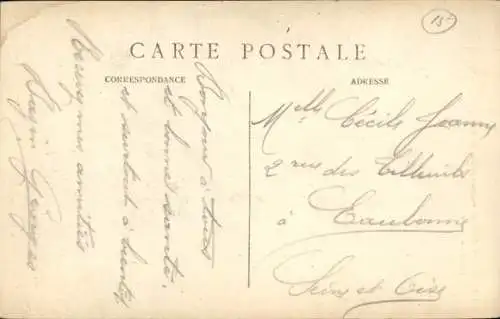 15
CARTE POSTALE
CORRESPONDANCE
ADRESSE
Bonjour à tous
et bonne santé.
et surtout à bientôt
Recevez mes amitiés
Georges
Melle Cécile Jeanny
2 rue des Tilleuls
à Eaubonne
Seine et Oise